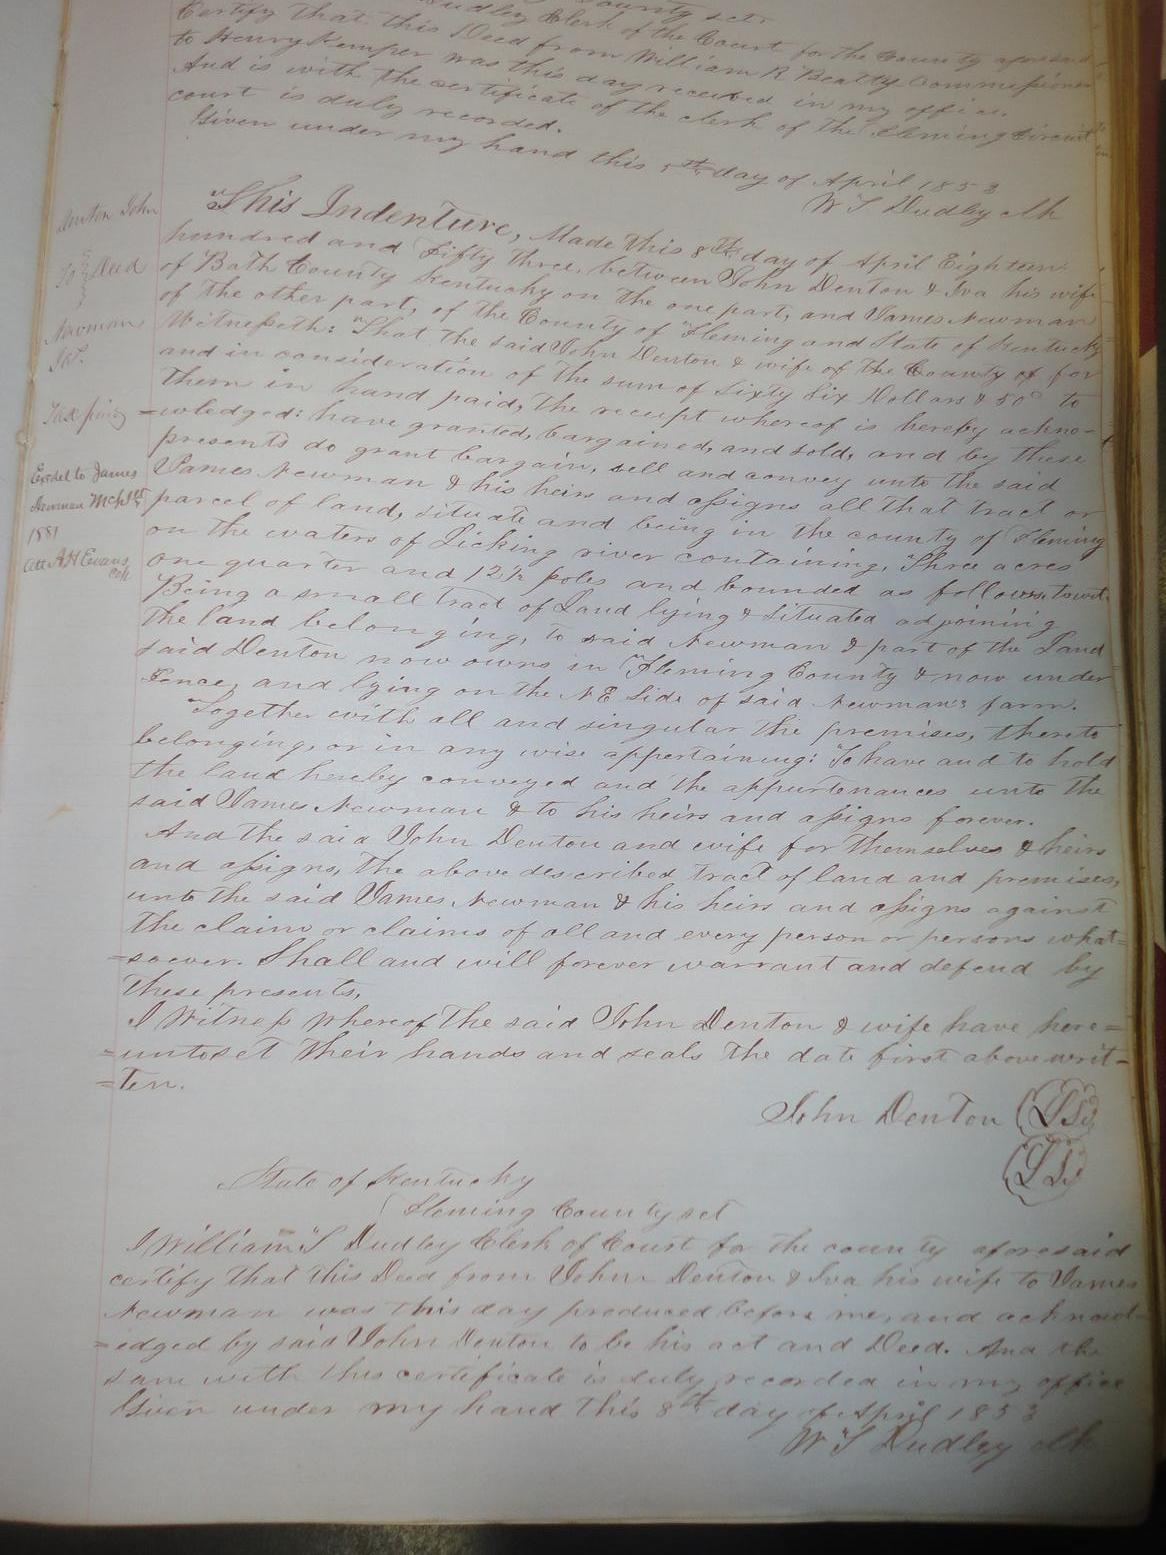 County sct.
Dudley Clerk of the Court for the County aforesaid
Certify that this Deed from William R Beatty Commissioner
to Henry Kemper was this day received in my office.
And is with the certificate of the clerk of the Fleming Circuit
court is duly recorded.
Given under my hand this day of April 1853
W S Dudley Clk
Denton John
To Deed
Newman
Jas.
Tax paid
Exd del to James
Newman Mch 1st
1881
att A H Evans
Clk
This Indenture, Made this 8th day of April Eighteen
hundred and Fifty three, between John Denton & Iva his wife
of Bath County Kentucky on the one part, and James Newman
of the other part, of the County of Fleming and State of Kentucky
Witnesseth: That the said John Denton & wife of the County of for
and in consideration of the sum of Sixty Six Dollars & 50c to
them in hand paid, the receipt whereof is hereby ackno-
=wledged: have granted, bargained, and sold, and by these
presents do grant bargain, sell and convey unto the said
James Newman & his heirs and assigns all that tract or
parcel of land, situate and being in the county of Fleming
on the waters of Licking river containing, Three acres
one quarter and 12½ poles and bounded as follows, towit.
Being a small tract of Land lying & situated adjoining
the land belonging, to said Newman & part of the Land
said Denton now owns in Fleming County & now under
Fence, and lying on the N E Side of said Newman's farm.
Together with all and singular the premises, thereto
belonging, or in any wise appertaining: To have and to hold
the land hereby conveyed and the appurtenances unto the
said James Newman & to his heirs and assigns forever.
And the said John Denton and wife for themselves & heirs
and assigns, the above described tract of land and premises,
unto the said James Newman & his heirs and assigns against
the claim or claims of all and every person or persons what=
=soever. Shall and will forever warrant and defend by
these presents,
I Witness Whereof the said John Denton & wife have here=
=unto set their hands and seals the date first above writ-
=ten.
John Denton (L.S.)
(L.S.)
State of Kentucky
Fleming County sct
I William S Dudley Clerk of Court for the county aforesaid
certify that this Deed from John Denton & Iva his wife to James
Newman was this day produced before me, and acknowl-
=edged by said John Denton to be his act and Deed. And the
same with this certificate is duly recorded in my office
Given under my hand this 8th day of April 1853
W S Dudley Clk